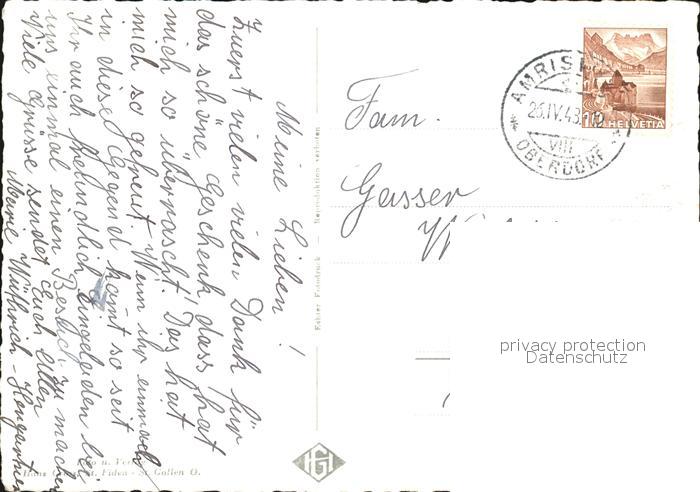 Meine Lieben!
Zuerst vielen vielen Dank für
das schöne Geschenk, dass hat
mich so überrascht! Das hat
mich so gefreut. Wenn ihr einmal
in diese Gegend komt so seit
Ihr auch freundlich eingeladen bei
uns einmal einen Besuch zu machen
Viele Grüsse sendet Euch allen
Marie Wüthrich-Hengartner
Echter Fotodruck — Reproduktion verboten
St. Fiden - St. Gallen O.
Fam.
Gasser
AMRIS
26.IV.43.
VIII
OBERDORF
10 HELVETIA
privacy protection
Datenschutz